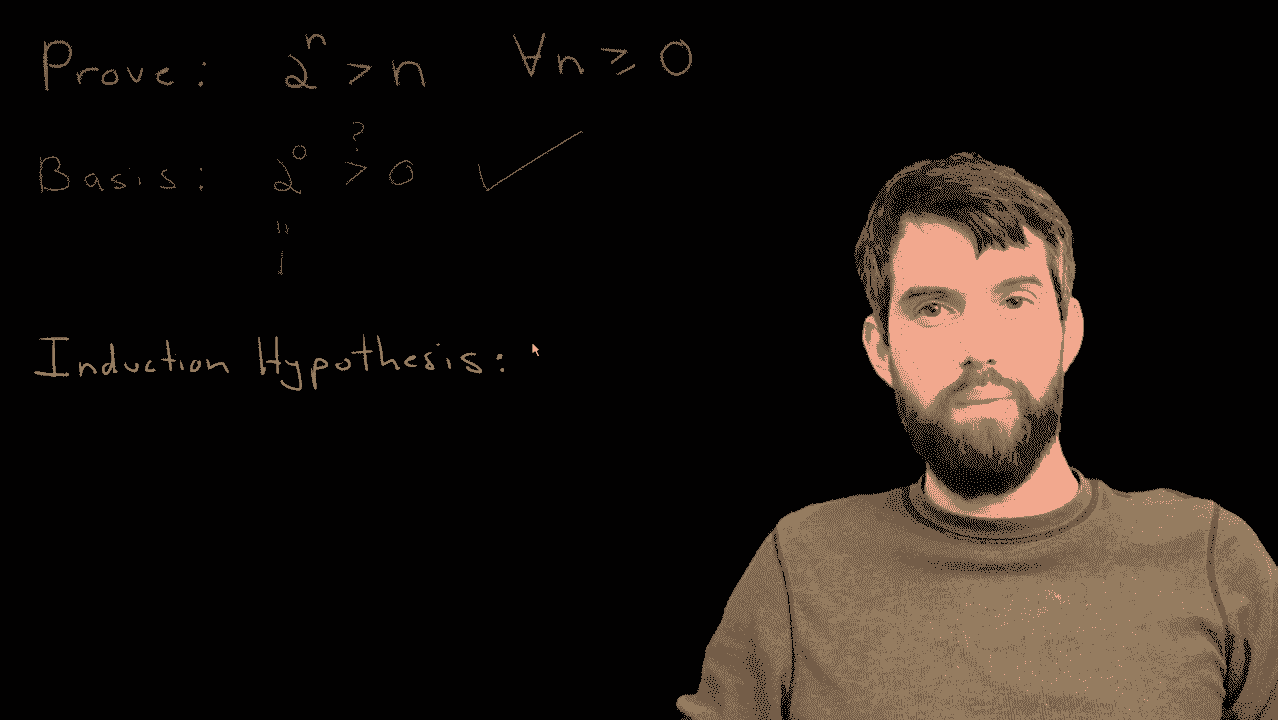 Prove: 2ⁿ > n ∀n ≥ 0
Basis: 2⁰ >? 0 ✓
"
1
Induction Hypothesis: